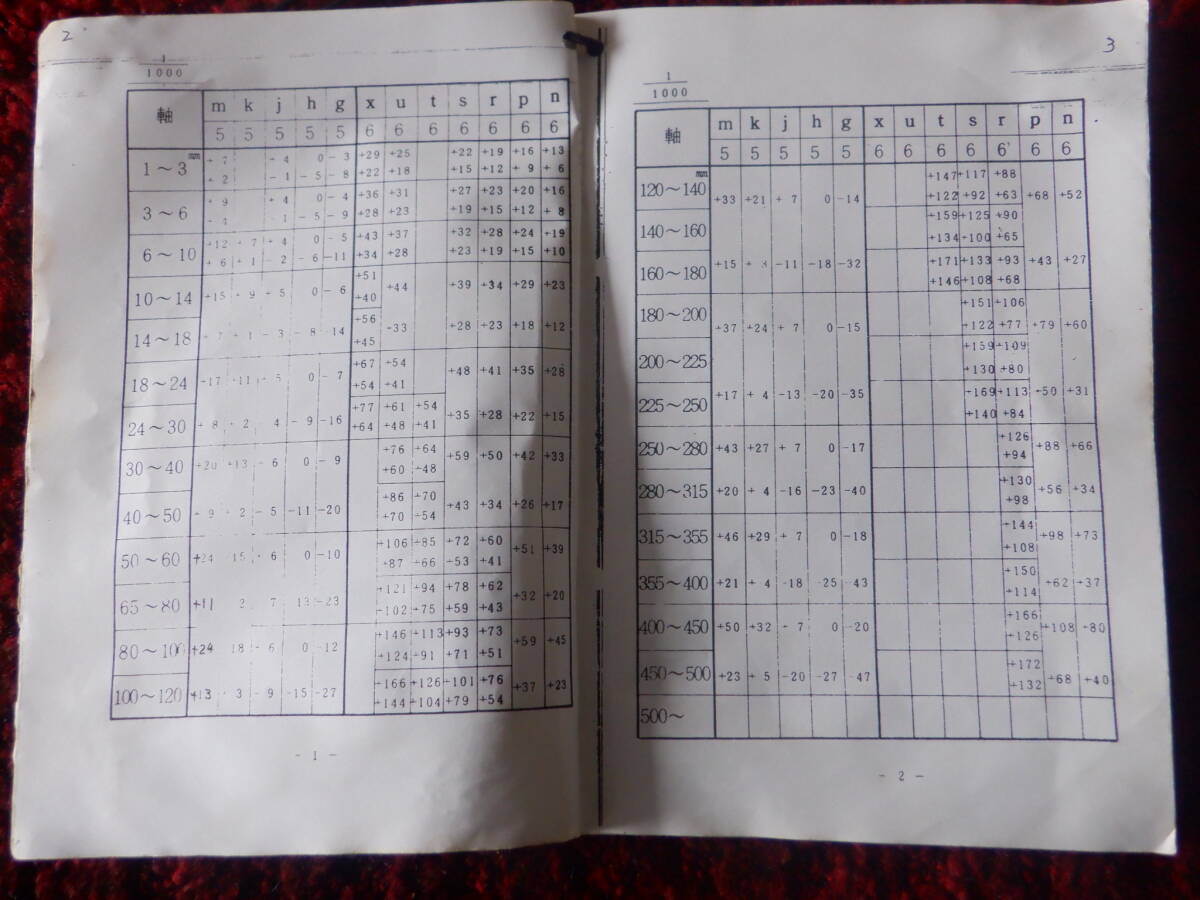 2
1
1000
軸 m k j h g x u t s r p n
5 5 5 5 5 6 6 6 6 6 6 6
1～3 mm + 7 + 4 0 - 3 +29 +25 +22 +19 +16 +13
+ 2 - 1 - 5 - 8 +22 +18 +15 +12 + 9 + 6
3～6 + 9 + 4 0 - 4 +36 +31 +27 +23 +20 +16
- 1 - 5 - 9 +28 +23 +19 +15 +12 + 8
6～10 +12 + 7 + 4 0 - 5 +43 +37 +32 +28 +24 +19
+ 6 + 1 - 2 - 6 -11 +34 +28 +23 +19 +15 +10
10～14 +15 + 9 + 5 0 - 6 +51 +44 +39 +34 +29 +23
+40
14～18 + 1 - 3 - 8 -14 +56 -33 +28 +23 +18 +12
+45
18～24 -17 +11 0 - 7 +67 +54 +48 +41 +35 +28
+54 +41
24～30 + 8 + 2 4 - 9 -16 +77 +61 +54 +35 +28 +22 +15
+64 +48 +41
30～40 +20 +13 - 6 0 - 9 +76 +64 +59 +50 +42 +33
+60 -48
40～50 + 9 + 2 - 5 -11 -20 +86 +70 +43 +34 +26 +17
+70 +54
50～60 +24 15 + 6 0 -10 +106 +85 +72 +60 +51 +39
+87 +66 +53 +41
65～80 +11 2 7 13 -23 +121 +94 +78 +62 +32 +20
-102 +75 +59 +43
80～100 +24 18 - 6 0 -12 +146 +113 +93 +73 +59 +45
+124 +91 +71 +51
100～120 +13 + 3 - 9 -15 -27 +166 +126 +101 +76 +37 +23
+144 +104 +79 +54
- 1 -
3
1
1000
軸 m k j h g x u t s r p n
5 5 5 5 5 6 6 6 6 6 6 6
120～140 mm +33 +21 + 7 0 -14 +147 +117 +88 +68 +52
+122 +92 +63
140～160 +159 +125 +90
+134 +100 +65
160～180 +15 -11 -18 -32 +171 +133 +93 +43 +27
+146 +108 +68
180～200 +37 +24 + 7 0 -15 +151 +106 +79 +60
+122 +77
200～225 +159 +109
+130 +80
225～250 +17 + 4 -13 -20 -35 +169 +113 +50 +31
+140 +84
250～280 +43 +27 + 7 0 -17 +126 +88 +66
+94
280～315 +20 + 4 -16 -23 -40 +130 +56 +34
+98
315～355 +46 +29 + 7 0 -18 +144 +98 +73
+108
355～400 +21 + 4 -18 -25 -43 +150 +62 +37
+114
400～450 +50 +32 - 7 0 -20 +166 +108 +80
+126
450～500 +23 + 5 -20 -27 -47 +172 +68 +40
+132
500～
- 2 -